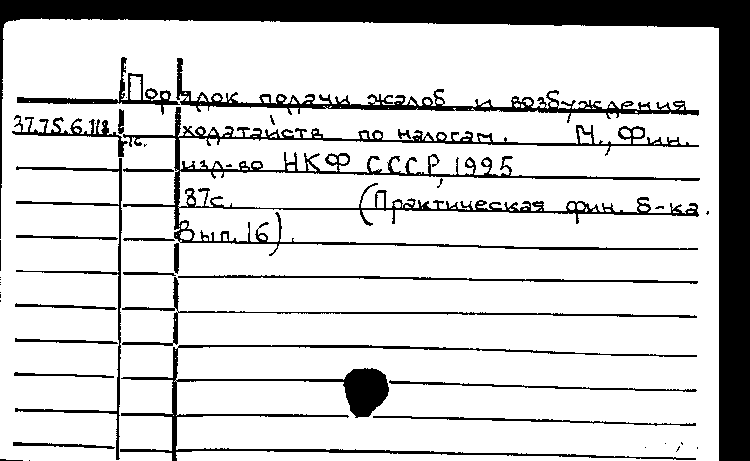 Порядок подачи жалоб и возбуждения
37.75.6.118. ходатайств по налогам. М., Фин.
-16.
изд-во НКФ СССР, 1925.
87с. (Практическая фин. б-ка.
Вып. 16).